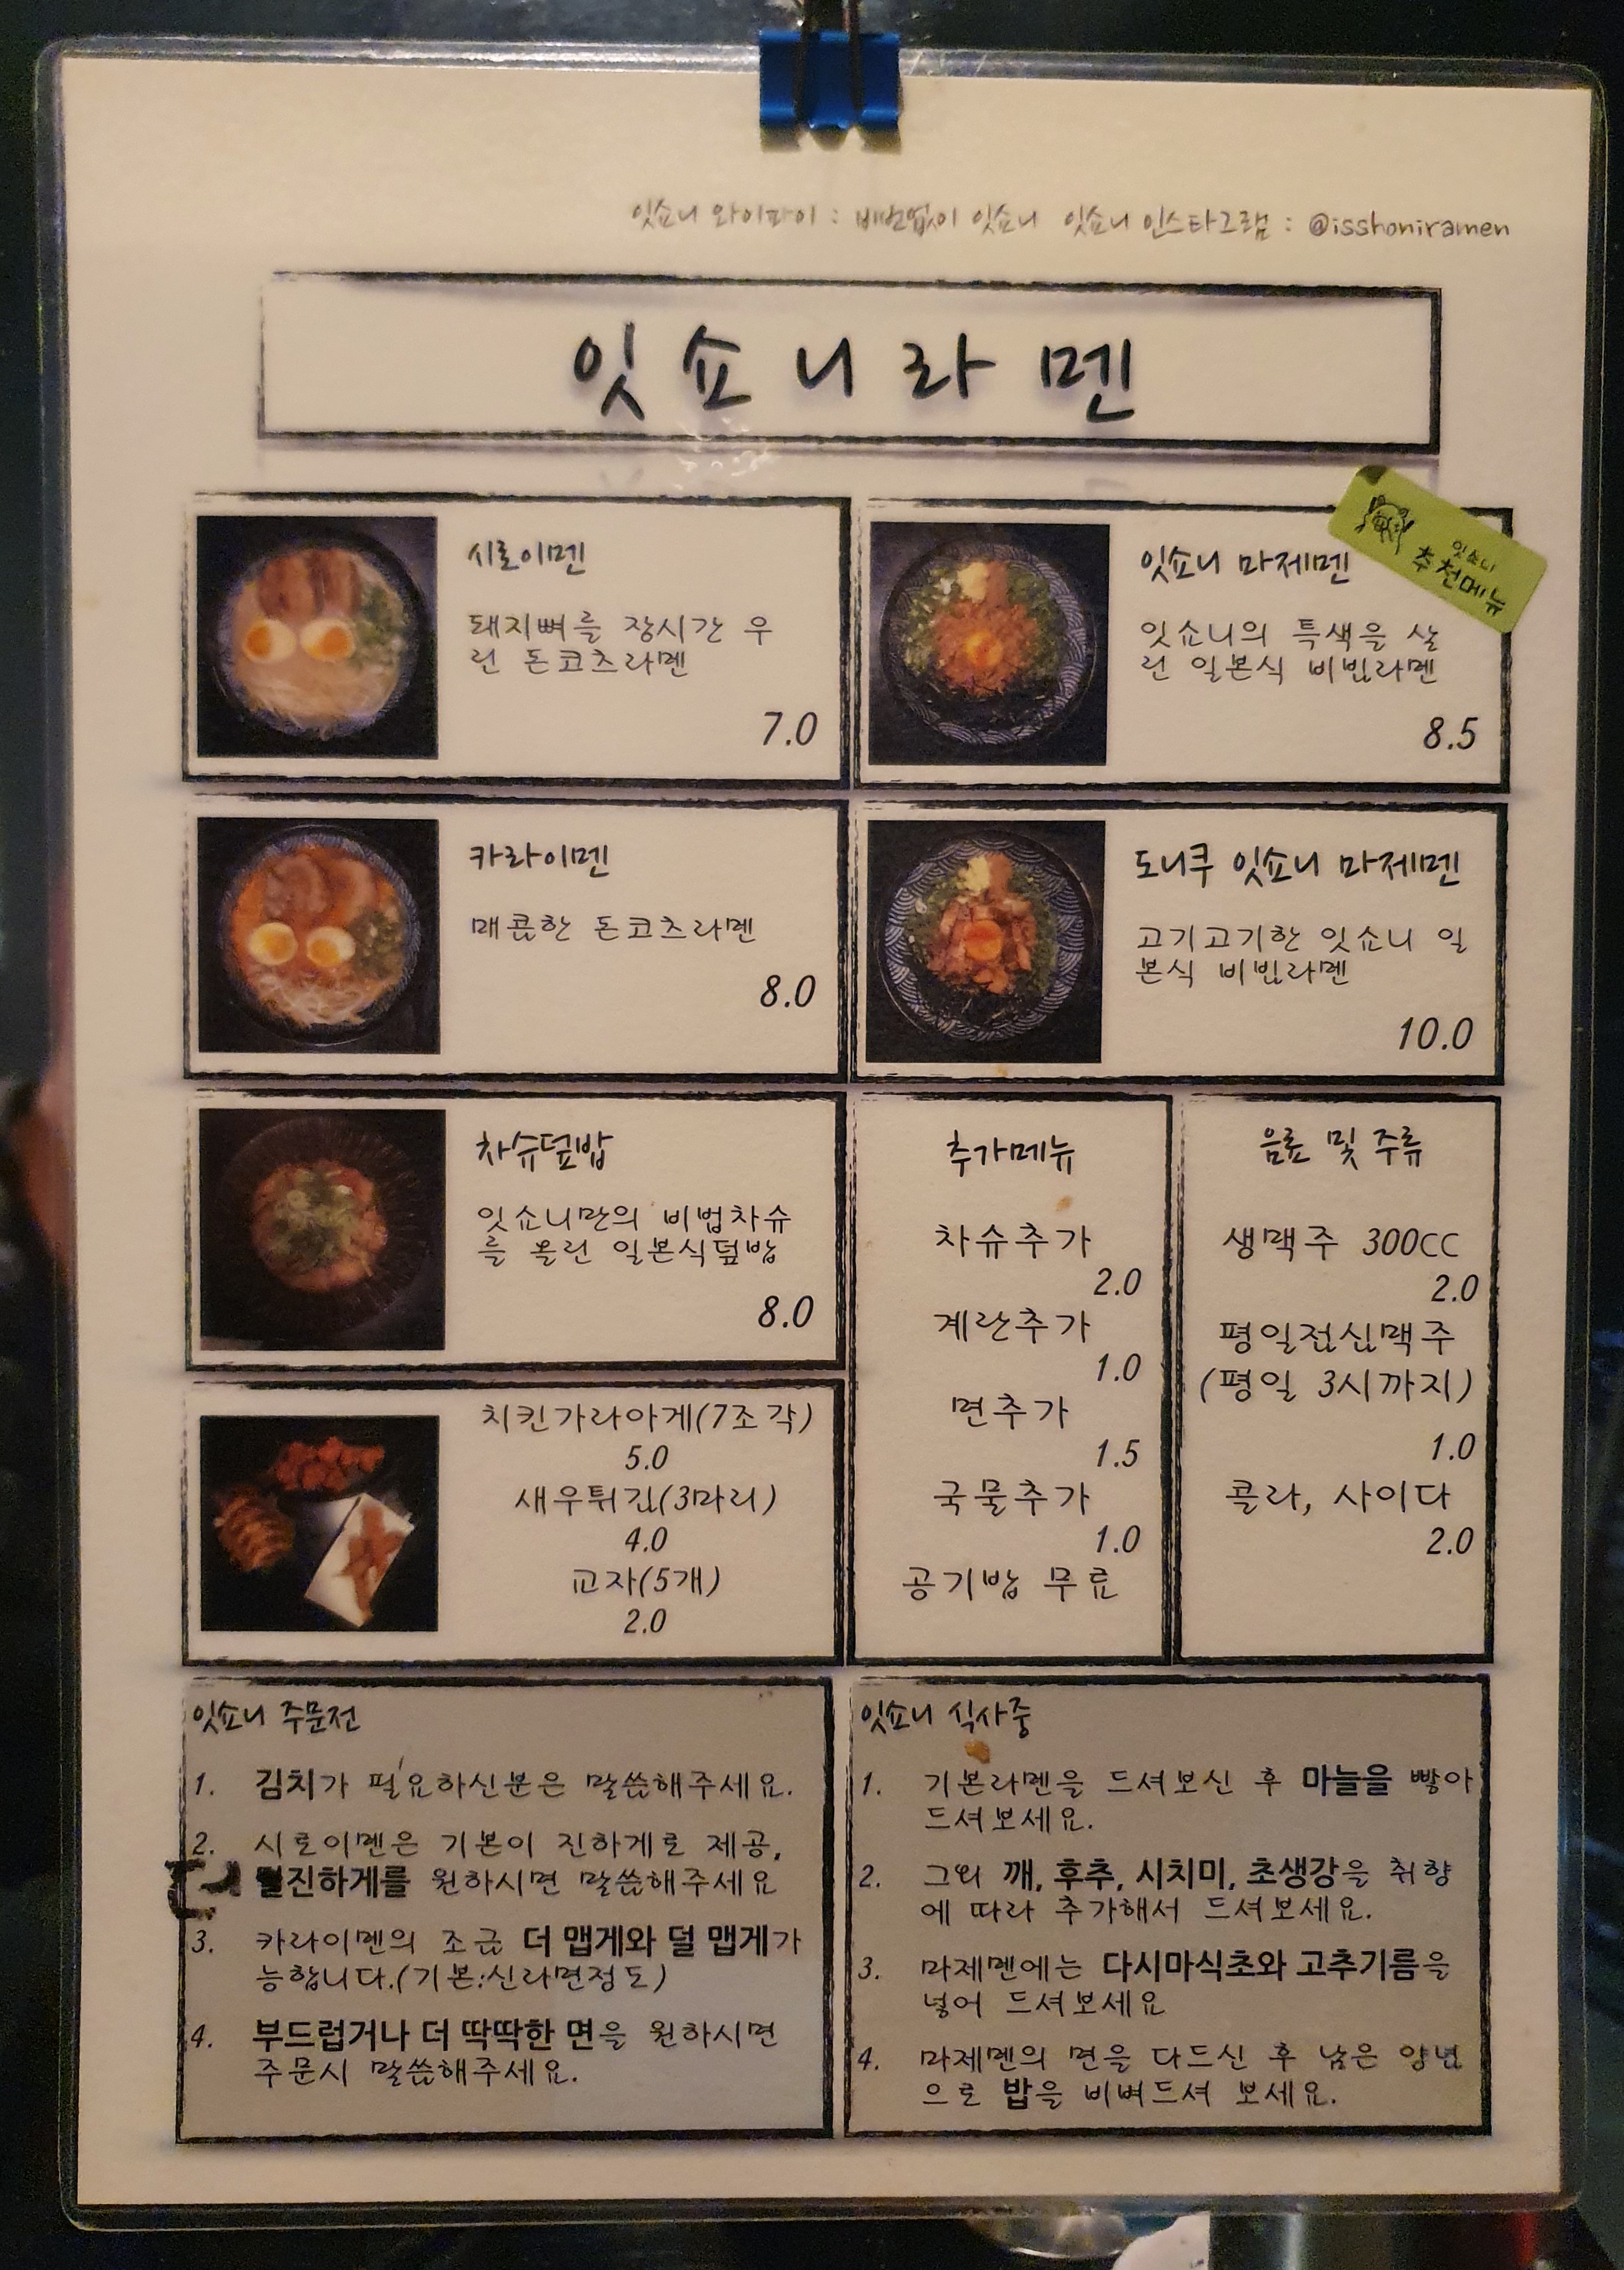 잇쇼니 와이파이 : 비번없이 잇쇼니 잇쇼니 인스타그램 : @isshoniramen
잇쇼니라멘
시로이멘
돼지뼈를 장시간 우
린 돈코츠라멘
7.0
잇쇼니 마제멘
잇쇼니
추천메뉴
잇쇼니의 특색을 살
린 일본식 비빔라멘
8.5
카라이멘
매콤한 돈코츠라멘
8.0
도니쿠 잇쇼니 마제멘
고기고기한 잇쇼니 일
본식 비빔라멘
10.0
차슈덮밥
잇쇼니만의 비법차슈
를 올린 일본식덮밥
8.0
치킨가라아게(7조각)
5.0
새우튀김(3마리)
4.0
교자(5개)
2.0
추가메뉴
차슈추가
2.0
계란추가
1.0
면추가
1.5
국물추가
1.0
공기밥 무료
음료 및 주류
생맥주 300CC
2.0
평일전신맥주
(평일 3시까지)
1.0
콜라, 사이다
2.0
잇쇼니 주문전
1. 김치가 필요하신분은 말씀해주세요.
2. 시로이멘은 기본이 진하게로 제공,
진하게를 원하시면 말씀해주세요
3. 카라이멘의 조금 더 맵게와 덜 맵게가
능합니다.(기본:신라면정도)
4. 부드럽거나 더 딱딱한 면을 원하시면
주문시 말씀해주세요.
잇쇼니 식사중
1. 기본라멘을 드셔보신 후 마늘을 빻아
드셔보세요.
2. 그외 깨, 후추, 시치미, 초생강을 취향
에 따라 추가해서 드셔보세요.
3. 마제멘에는 다시마식초와 고추기름을
넣어 드셔보세요
4. 마제멘의 면을 다드신 후 남은 양념
으로 밥을 비벼드셔 보세요.